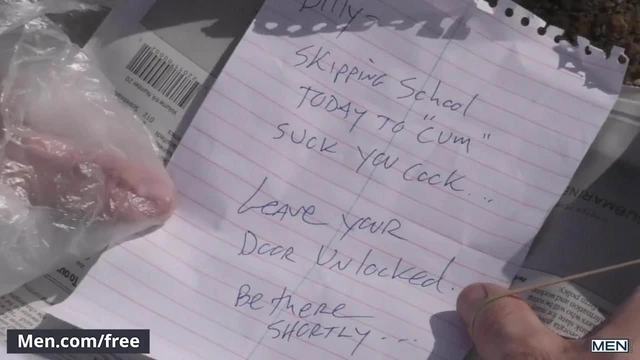 Billy-
SKIPPING School
TODAY TO "CUM"
SUCK YOU COCK...
LEAVE YOUR
DOOR UNLOCKED.
Be there
SHORTLY....
Men.com/free
MEN